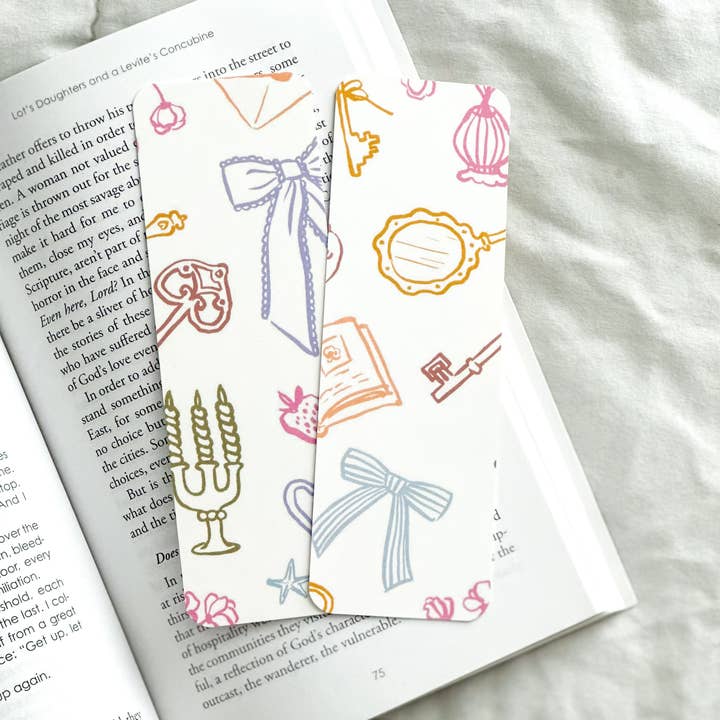 Lot's Daughters and a Levite's Concubine
ather offers to throw his into the street to
aped and killed in order some
en. A woman not valued
iage is thrown out for the s
night of the most savage abu
make it hard for me to
them, close my eyes, and
Scripture, aren't part of
horror in the face and
Even here, Lord? In the
there be a sliver of he
the stories of these
who have suffered
of God's love even
In order to add
stand something
East, for some
no choice but
the cities. So
choices, eve
But is the
what does
and the ti
Does
In
at ris the
that
of hospitality w
the communities they visit
ful, a reflection of God's charact
outcast, the wanderer, the vulnerable.
75
top.
And I
over the
n, bleed-
oor, every
niliation.
eshold, each
the last. I col-
f from a great
ce: "Get up, let
up again.